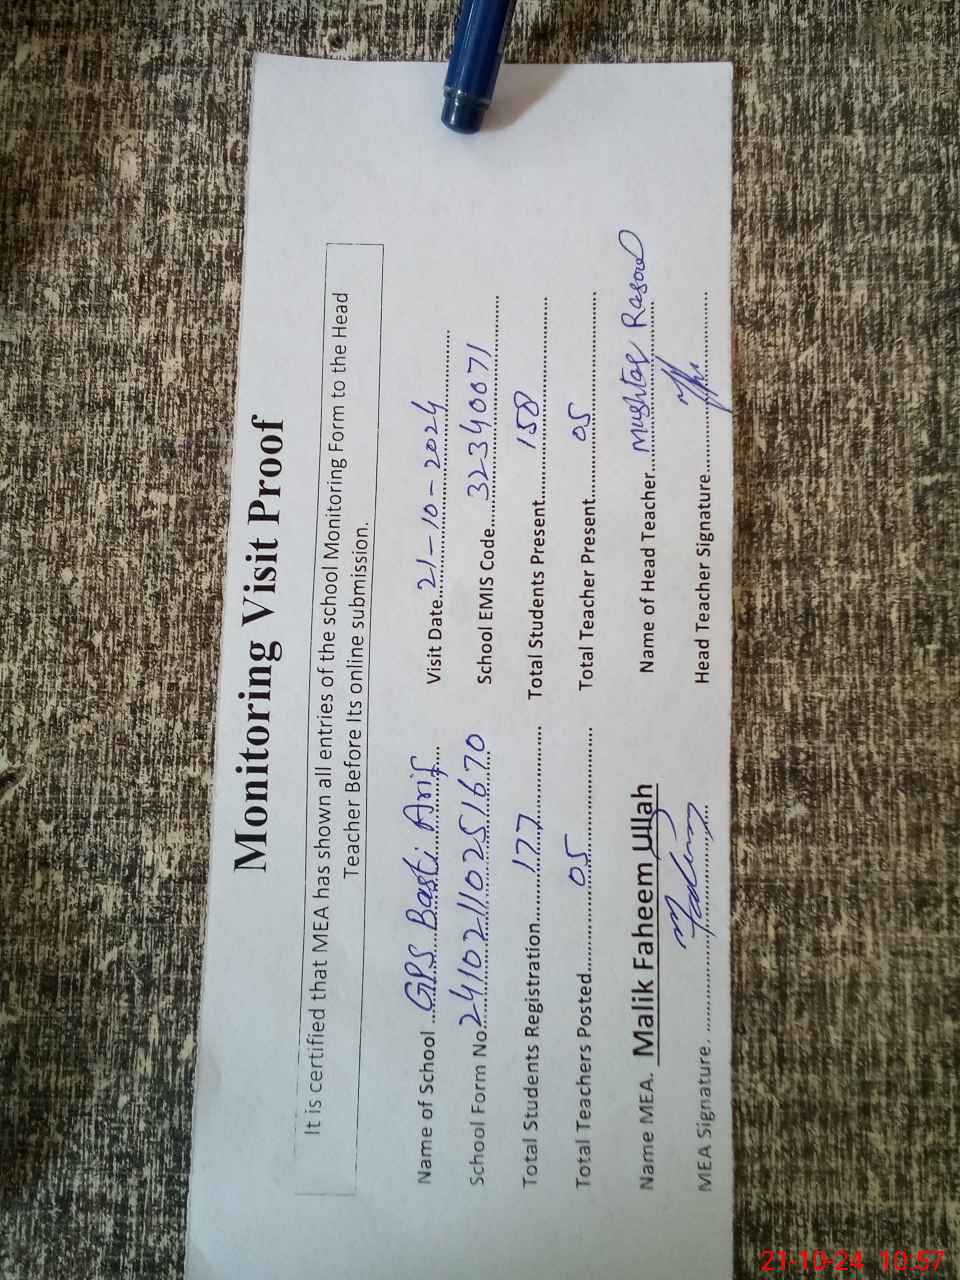 Monitoring Visit Proof
It is certified that MEA has shown all entries of the school Monitoring Form to the Head
Teacher Before Its online submission.
Name of School ...GPS Basti Arif... Visit Date...21-10-2024...
School Form No...24102110251670... School EMIS Code...32340071...
Total Students Registration...177... Total Students Present...158...
Total Teachers Posted...05... Total Teacher Present...05...
Name MEA. Malik Faheem Ullah Name of Head Teacher...Mushtaq Rasool...
MEA Signature. ... Head Teacher Signature...
21-10-24 10:57